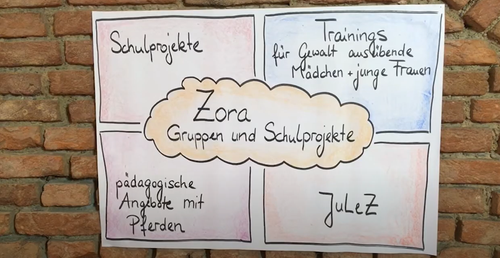 Schulprojekte
Trainings
für Gewalt ausübende
Mädchen + junge Frauen
Zora
Gruppen und Schulprojekte
pädagogische
Angebote mit
Pferden
JuLeZ